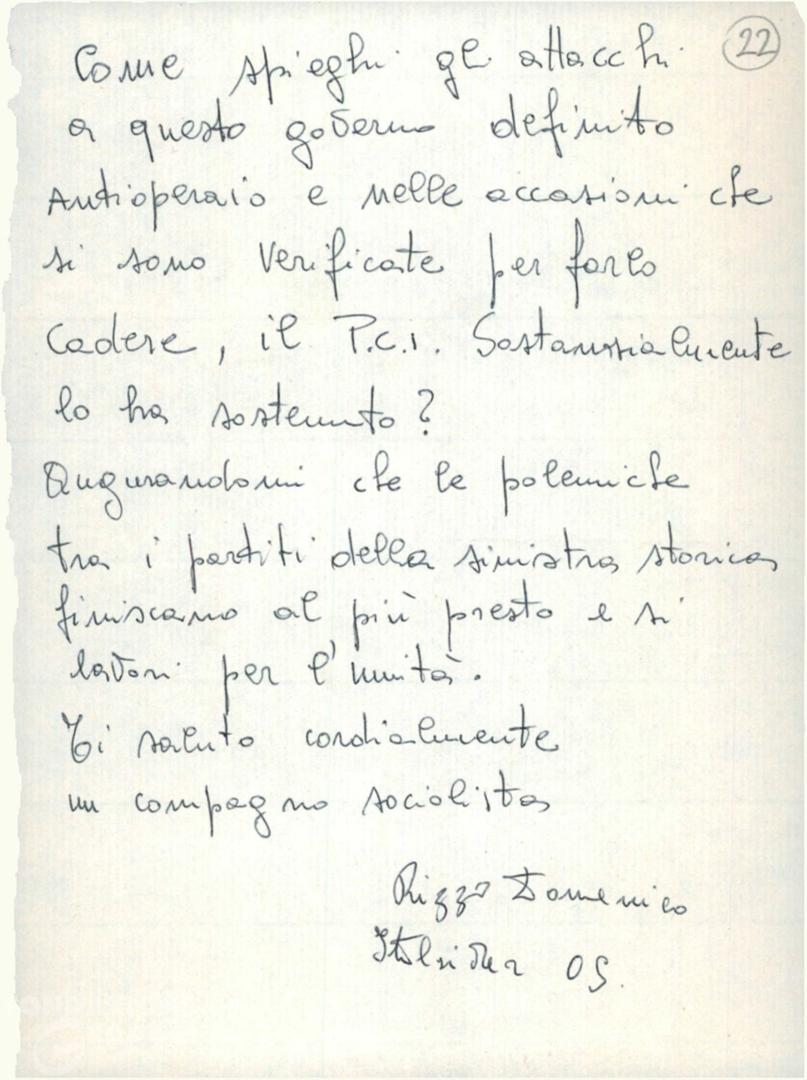 22
Come spieghi gli attacchi
a questo governo definito
Antioperaio e nelle occasioni che
si sono verificate per farlo
cadere, il P.c.i. Sostanzialmente
lo ha sostenuto?
Augurandomi che le polemiche
tra i partiti della sinistra storica
finiscano al più presto e si
lavori per l'unità.
Ti saluto cordialmente
un compagno socialista
Rizzo Domenico
Italsider OS.